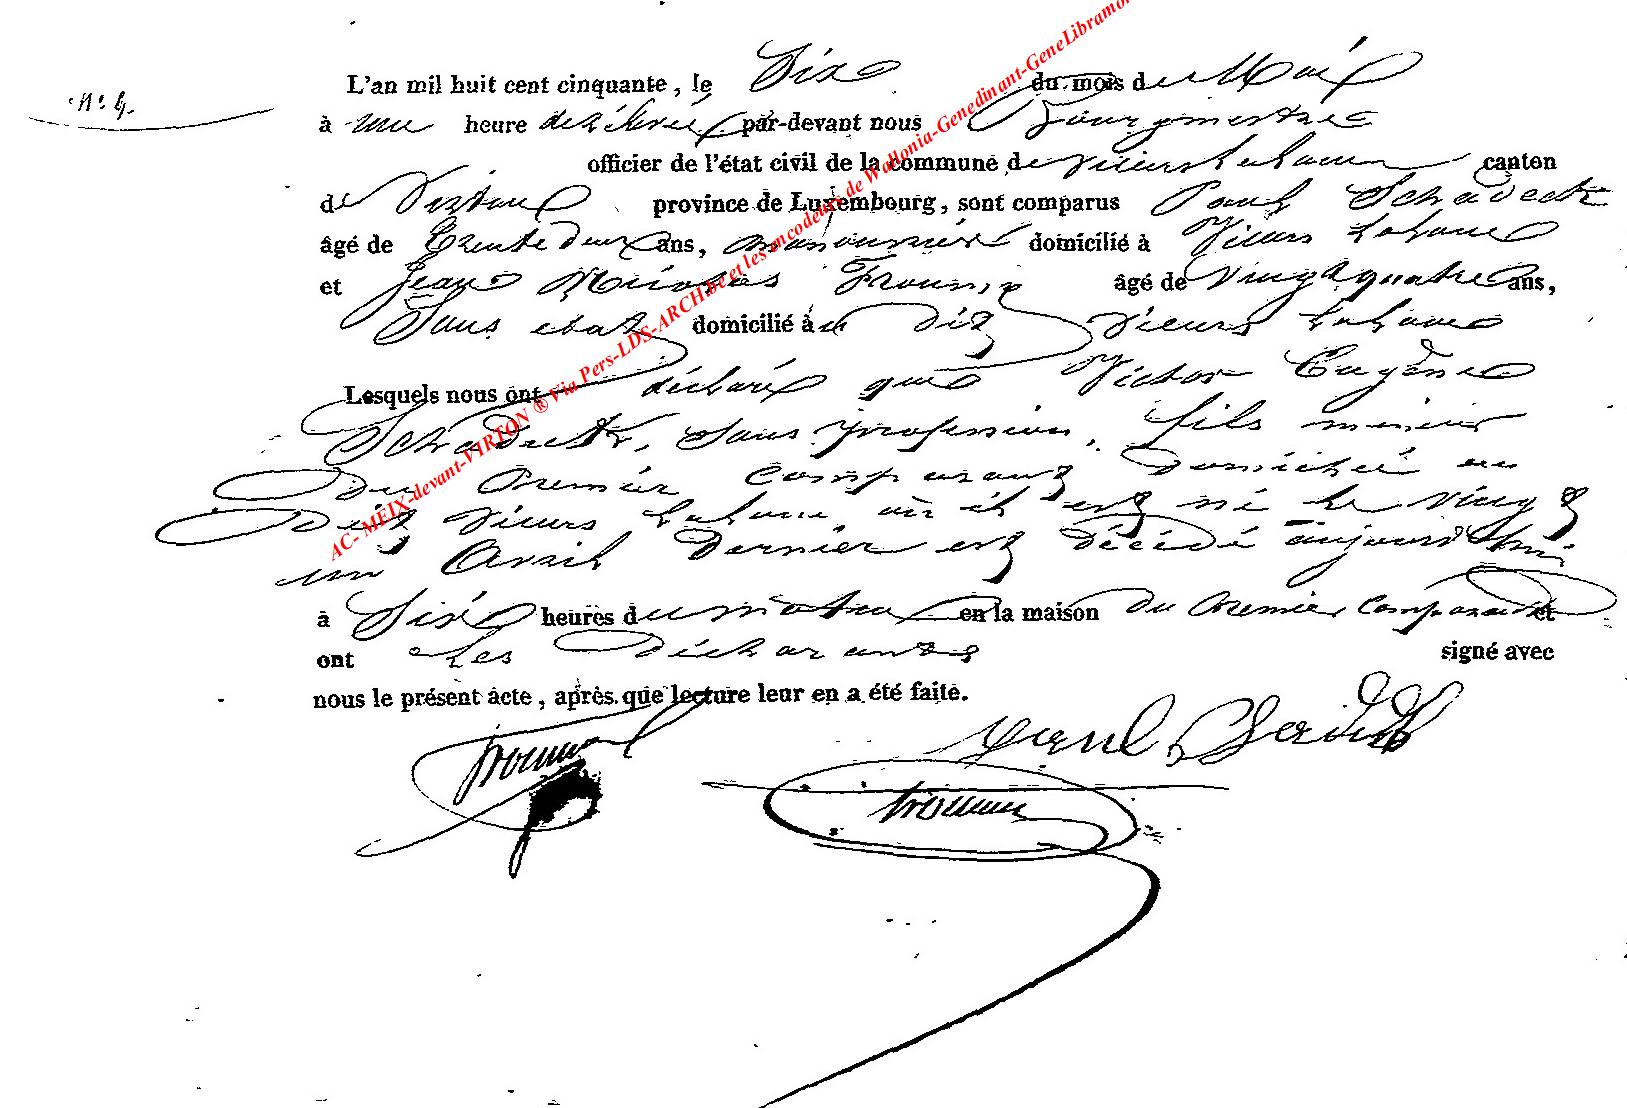 N° 4.
L'an mil huit cent cinquante, le Six du mois de Mai
à une heure de relevée par-devant nous Bourgmestre
officier de l'état civil de la commune de Villers laloue canton
de Virton province de Luxembourg, sont comparus Paul Schadeck
âgé de trente deux ans, manouvrier domicilié à Villers laloue
et Jean Nicolas âgé de vingt quatre ans,
Sans état domicilié à u dit Villers laloue
Lesquels nous ont déclaré que Victor Eugène
Schadeck, sans profession, fils mineur
du Premier comparant domicilié au
dit Villers laloue où il est né le vingt
un Avril dernier est décédé aujourd'hui
à Six heures du matin en la maison du Premier Comparant et
ont les déclarants signé avec
nous le présent acte, après que lecture leur en a été faite.
Paul Schadeck
AC- MEIX-devant-VIRTON ® Via Pers-LDS-ARCH.be et les encodeurs de Wallonia-Genedinant-GeneLibramon